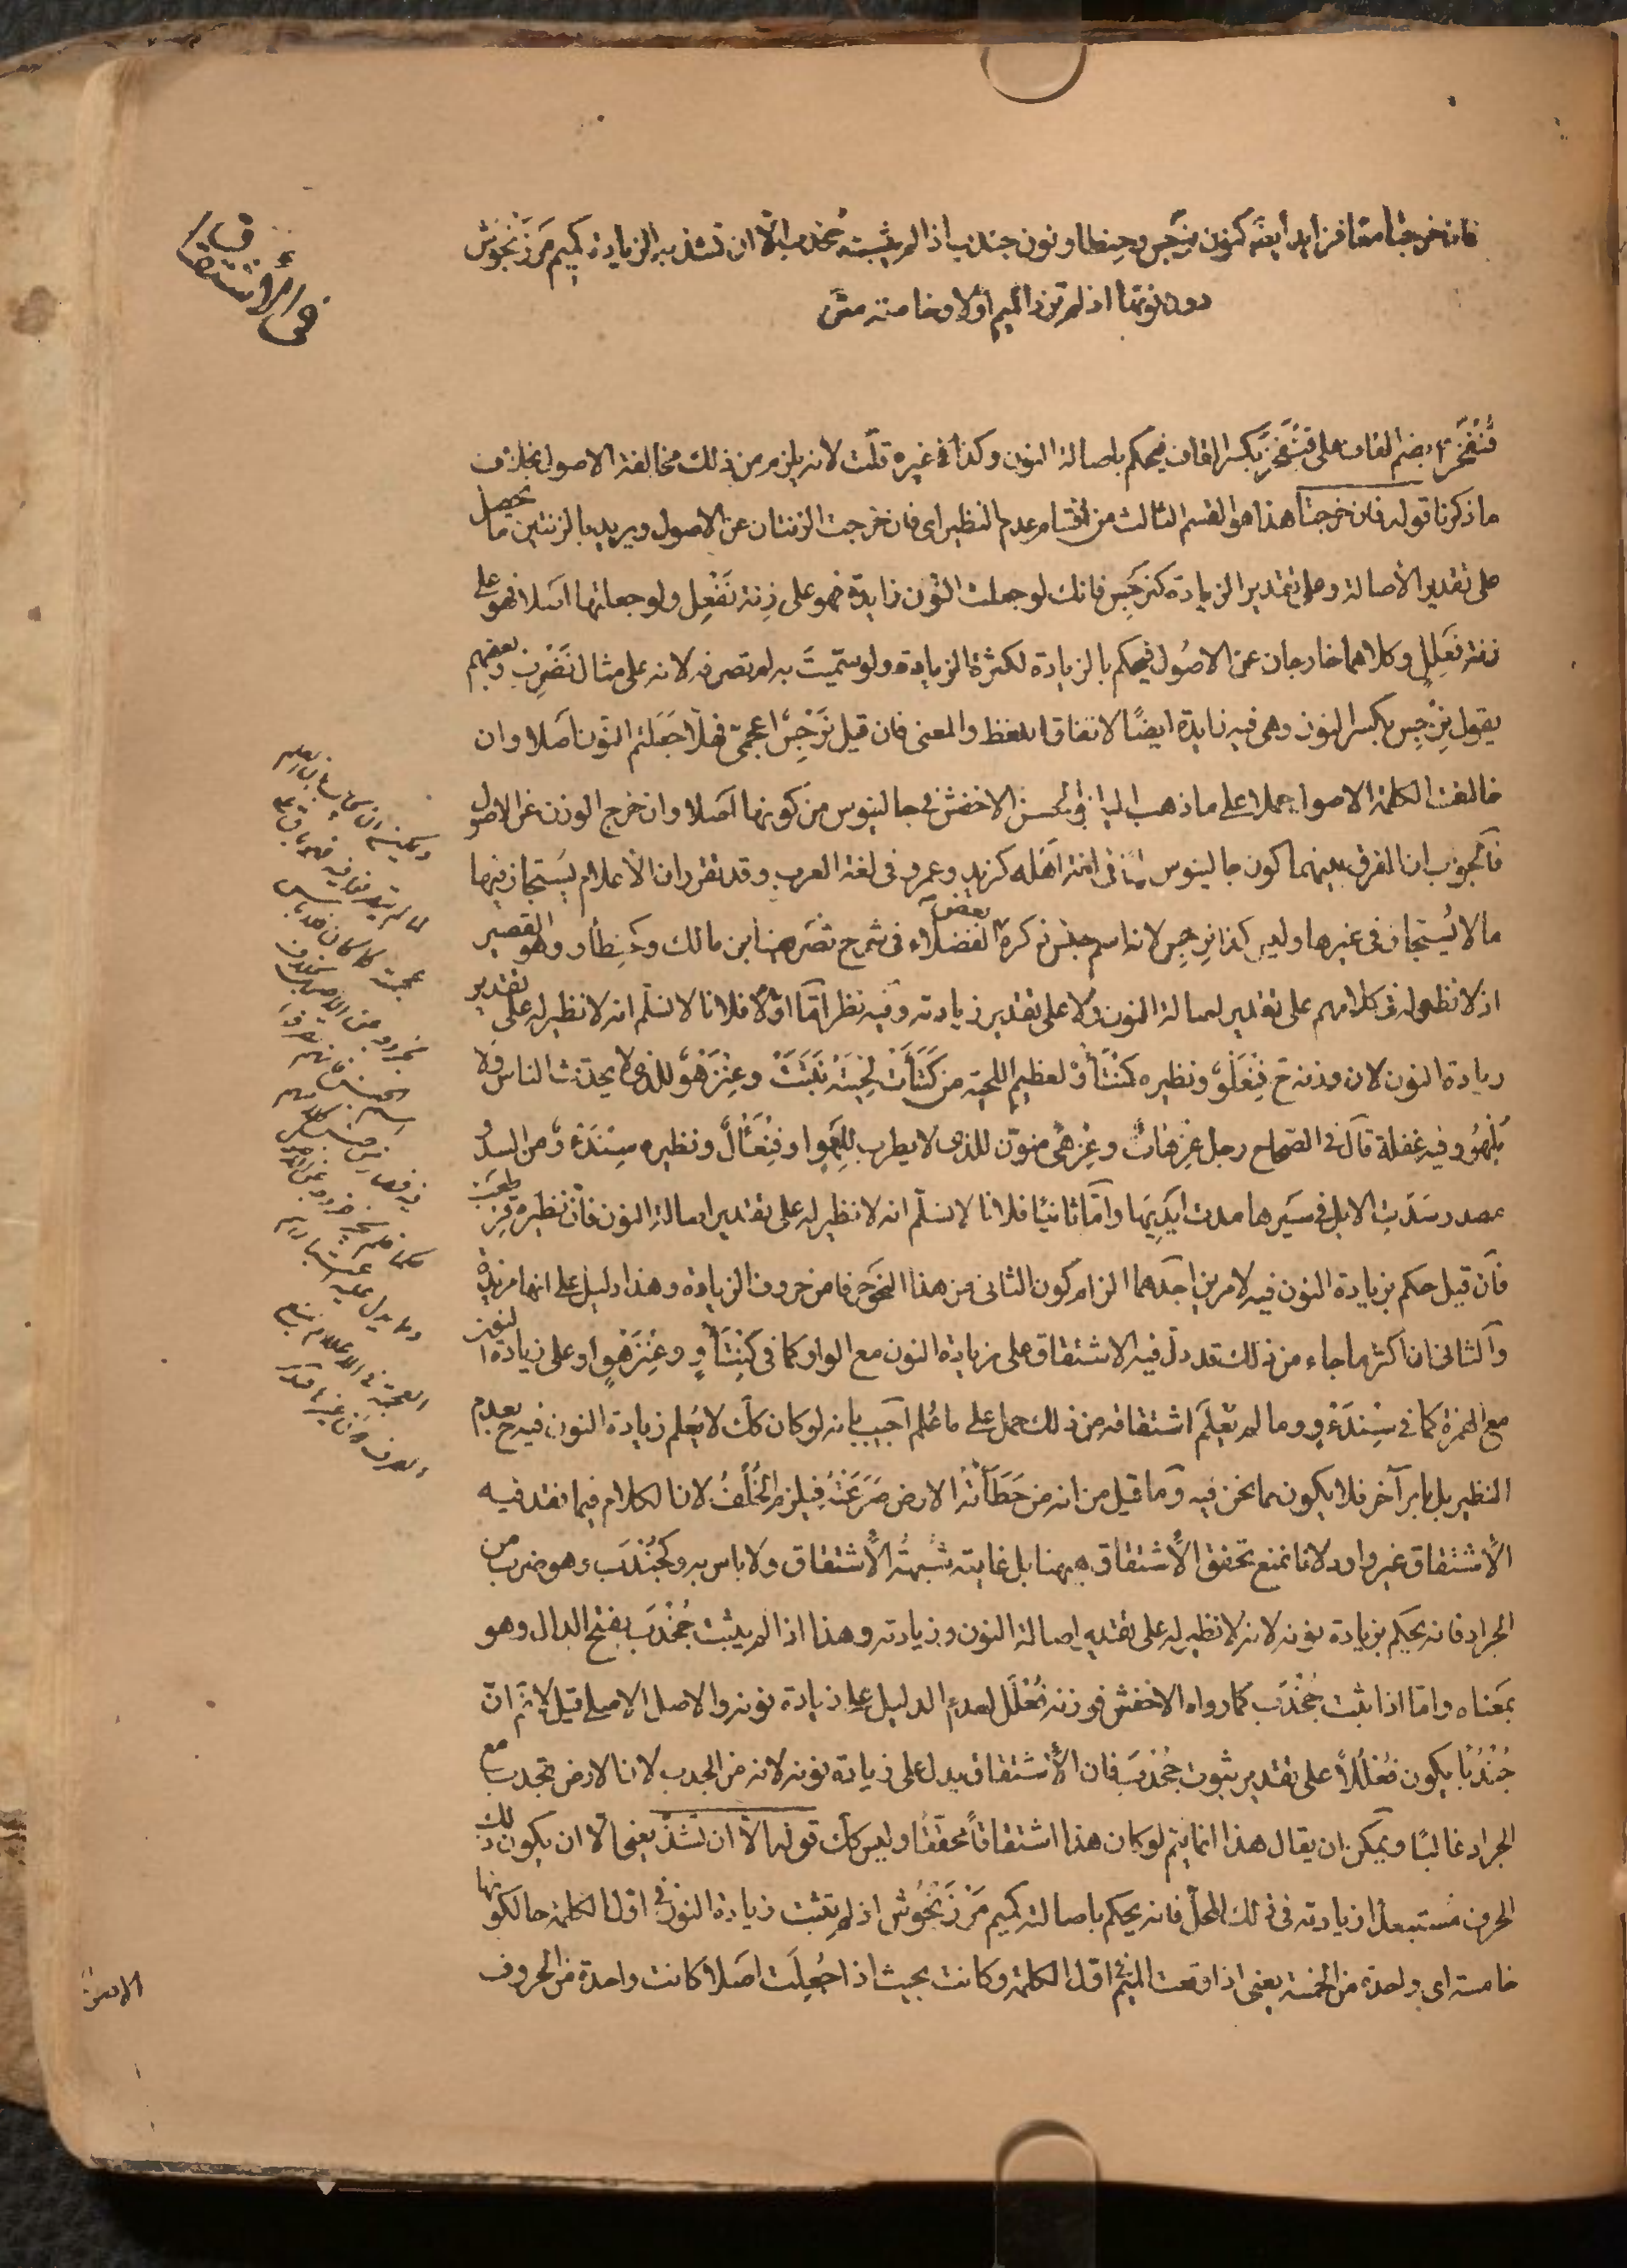 فان خرجتا معا فزايد أيضا كنون نرجس وحنطاو ونون جندب اذا لم يثبت جخدب الا ان تشذ به الزيادة كميم مرزنجوش
دون نونها اذ لم تزد الميم أولا خامسة
قُنْفَخْر بضم القاف على قِنْفَخْر بكسر القاف فيحكم باصالة النون وكذا في غيره قلت لانه يلزم من ذلك مخالفة الاصول بخلاف
ما ذكرنا قوله فان خرجتا هذا هو القسم الثالث من اقسام عدم النظير اى فان خرجت الزنتان عن الاصول ويريد بالزنتين ما يحصل
على تقدير الأصالة وعلى تقدير الزيادة كنرجس فانك لو جعلت النون زايدة فهو على زنة نَفْعِل ولو جعلتها اصلا فهو على
زنة فَعْلِلٍ وكلاهما خارجان عن الاصُول فيحكم بالزيادة لكثرة الزيادة ولو سمّيتَ به لم تصرفه لانه على مثال نَضْرِبُ وبعضهم
يقول نِرْجِس بكسر النون وهى فيه زايدة ايضًا لاتفاق اللفظ والمعنى فان قيل نَرْجِسٌ اعجمىّ فهلّا جَعَلتم النون اصَلا وان
خالفت الكلمة الاصول حملا على ما ذهب اليه ابو الحسن الاخفش فى جالينوس من كونها اصَلا وان خرج الوزن عن الاصول
فالجوب ان الفرق بينهما كون جالينوس علما فى لغة اهله كزيد وعمرو فى لغة العرب وقد تقرر ان الأعلام يستجاز فيها
ما لا يُستجاز فى غيرها وليس كذا نرجس لانه اسم جنس ذكره بعض الفضلاء فى شرح تصريف ابن مالك وكحنطأو وهو القصير
اذ لا نظير له فى كلامهم على تقدير اصالة النون ولا على تقدير زيادته وفيه نظر امّا اوّلا فلانا لا نسلّم انه لا نظير له على تقدير
زيادة النون لان وزنه ح فِنْعَلْوٌ ونظيره كِنْتَأْوٌ لعظيم اللحية من كَثَأَتْ لِحْيَتُه نَبَتَتْ وعِنْزَهْوٌ للذى لا يحدّث الناس ولا
يَلْهُو وفيه غفلة قال فى الصحاح رجل عِزْهاة وعِزْهًى منوّن للذى لا يطرب لِلَّهو او فِنْعَأْلٌ ونظيره سِنْدَءْوٌ من السدو
مصدر سَدَتِ الابل فى سَيرها مدت ايديَها وامّا ثانيًا فلانا لا نسلّم انه لا نظير له على تقدير اصالة النون فان نظيره قِرْطَعْب
فان قيل حكم بزيادة النون فيه لامرين احدهما الزام كون الثانى من هذا النحو حرفا من حروف الزيادة وهذا دليل على انها مزيدة
والثانى ان اكثر ما جاء من ذلك قد دلّ فيه الاشتقاق على زيادة النون مع الواو كما فى كِنْتَأْوٍ وعِنْزَهْوٍ او على زيادة النون
مع الهمزة كما فى سِنْدَءْوٍ وما لم يُعْلَم اشتقاقه من ذلك حمل على ما عُلم اجيب بانه لو كان كك لا يُعلم زيادة النون فيه ح بعدم
النظير بل بامر آخر فلا يكون مما نحن فيه وما قيل من انه من حَطَأَتْه الارض صَرَعَتْهُ فيلزم الخُلْفُ لان الكلام فيما فقد فيه
الاشتقاق غير وارد لانا نمنع تحقق الاشتقاق ههنا بل غايته شبهةُ الاشتقاق ولا باس به وكجُنْدَب وهو ضرب من
الجراد فانه يحكم بزيادة نونه لانه لا نظير له على تقدير اصالة النون وزيادته وهذا اذا لم يثبت جُخْدَب بفتح الدال وهو
بمعناه واما اذا ثبت جُخْدَب كما رواه الاخفش فوزنه فُعْلَل لعدم الدليل على زيادة نونه والاصل الاصلى قيل لا ثم انّ
جُنْدَبًا يكون فُعْلَلًا على تقدير ثبوت جُخْدَب فان الاشتقاق يدل على زيادة نونه لانه من الجدب لان الارض تجدب مع
الجراد غالبًا ويمكن ان يقال هذا انما يتم لو كان هذا اشتقاقًا محققًا وليس كك قوله الا ان تشذّ يعنى الّا ان يكون ذلك
الحرف مستبعدا زيادته فى ذلك المحلّ فانه يحكم باصالته كميم مَرْزَنْجُوش اذ لم يثبت زيادة النون فى اول الكلمة حال كونها
خامسة اى واحدة من الخمسة يعنى اذا وقعت الميم فى اول الكلمة وكانت بحيث اذا جُعِلَت اصَلا كانت واحدة من الحروف